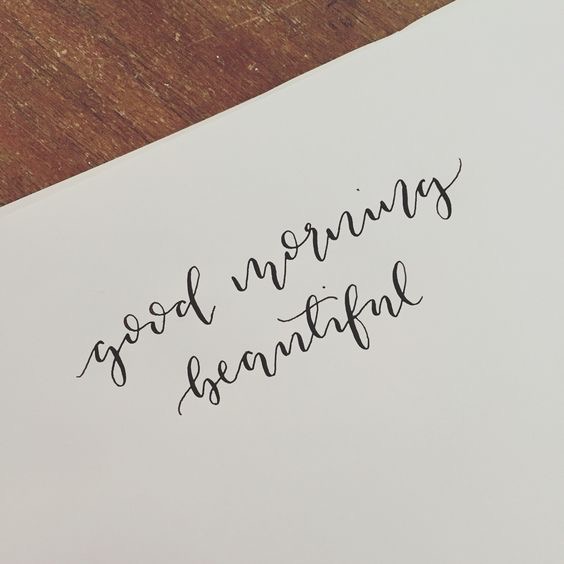 good morning
beautiful